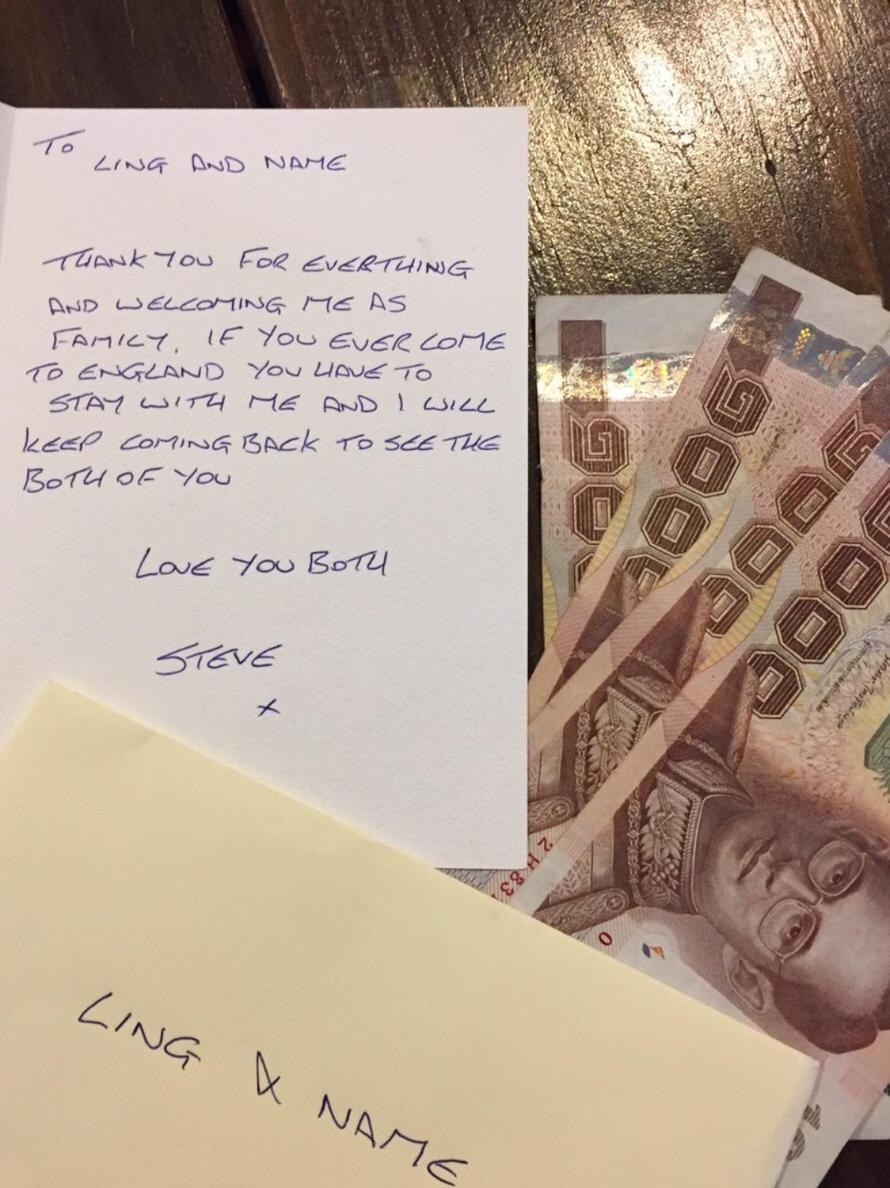 TO
LING AND NAME
THANK YOU FOR EVERTHING
AND WELCOMING ME AS
FAMILY. IF YOU EVER COME
TO ENGLAND YOU HAVE TO
STAY WITH ME AND I WILL
KEEP COMING BACK TO SEE THE
BOTH OF YOU
LOVE YOU BOTH
STEVE
x
LING & NAME
1000
1000
1000
1000
2H83
0